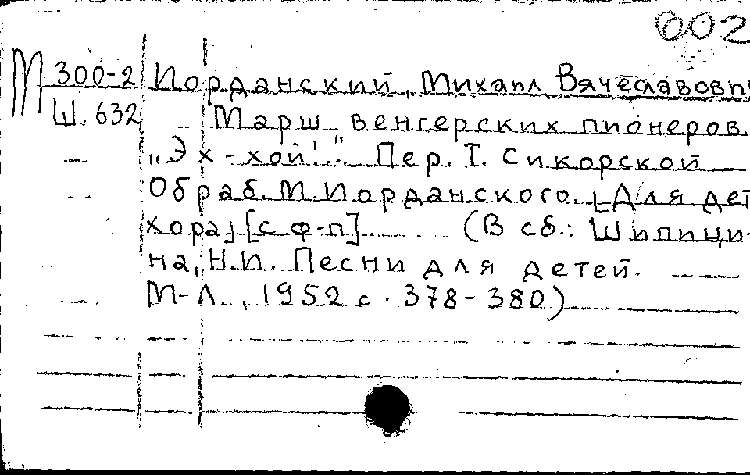 002
М 300-2 Иорданский, Михаил Вячеславович
Ш. 632 Марш венгерских пионеров
"Эх-хой!" Пер. Т. Сикорской
Обраб. М. Иорданского. [Для дет
хора] [с ф-п] (В сб.: Шипици-
на, Н.И. Песни для детей.
М-Л., 1952 с. 378-380)